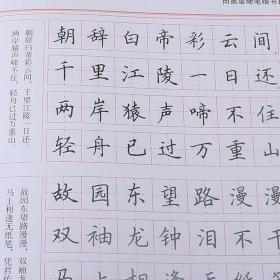 田英章硬笔楷书
朝辞白帝彩云间
千里江陵一日还
两岸猿声啼不住
轻舟已过万重山
故园东望路漫漫
双袖龙钟泪不干
马上相逢无纸笔
朝辞白帝彩云间，千里江陵一日还。
两岸猿声啼不住，轻舟已过万重山。
故园东望路漫漫，双袖龙
马上相逢无纸笔，凭君传